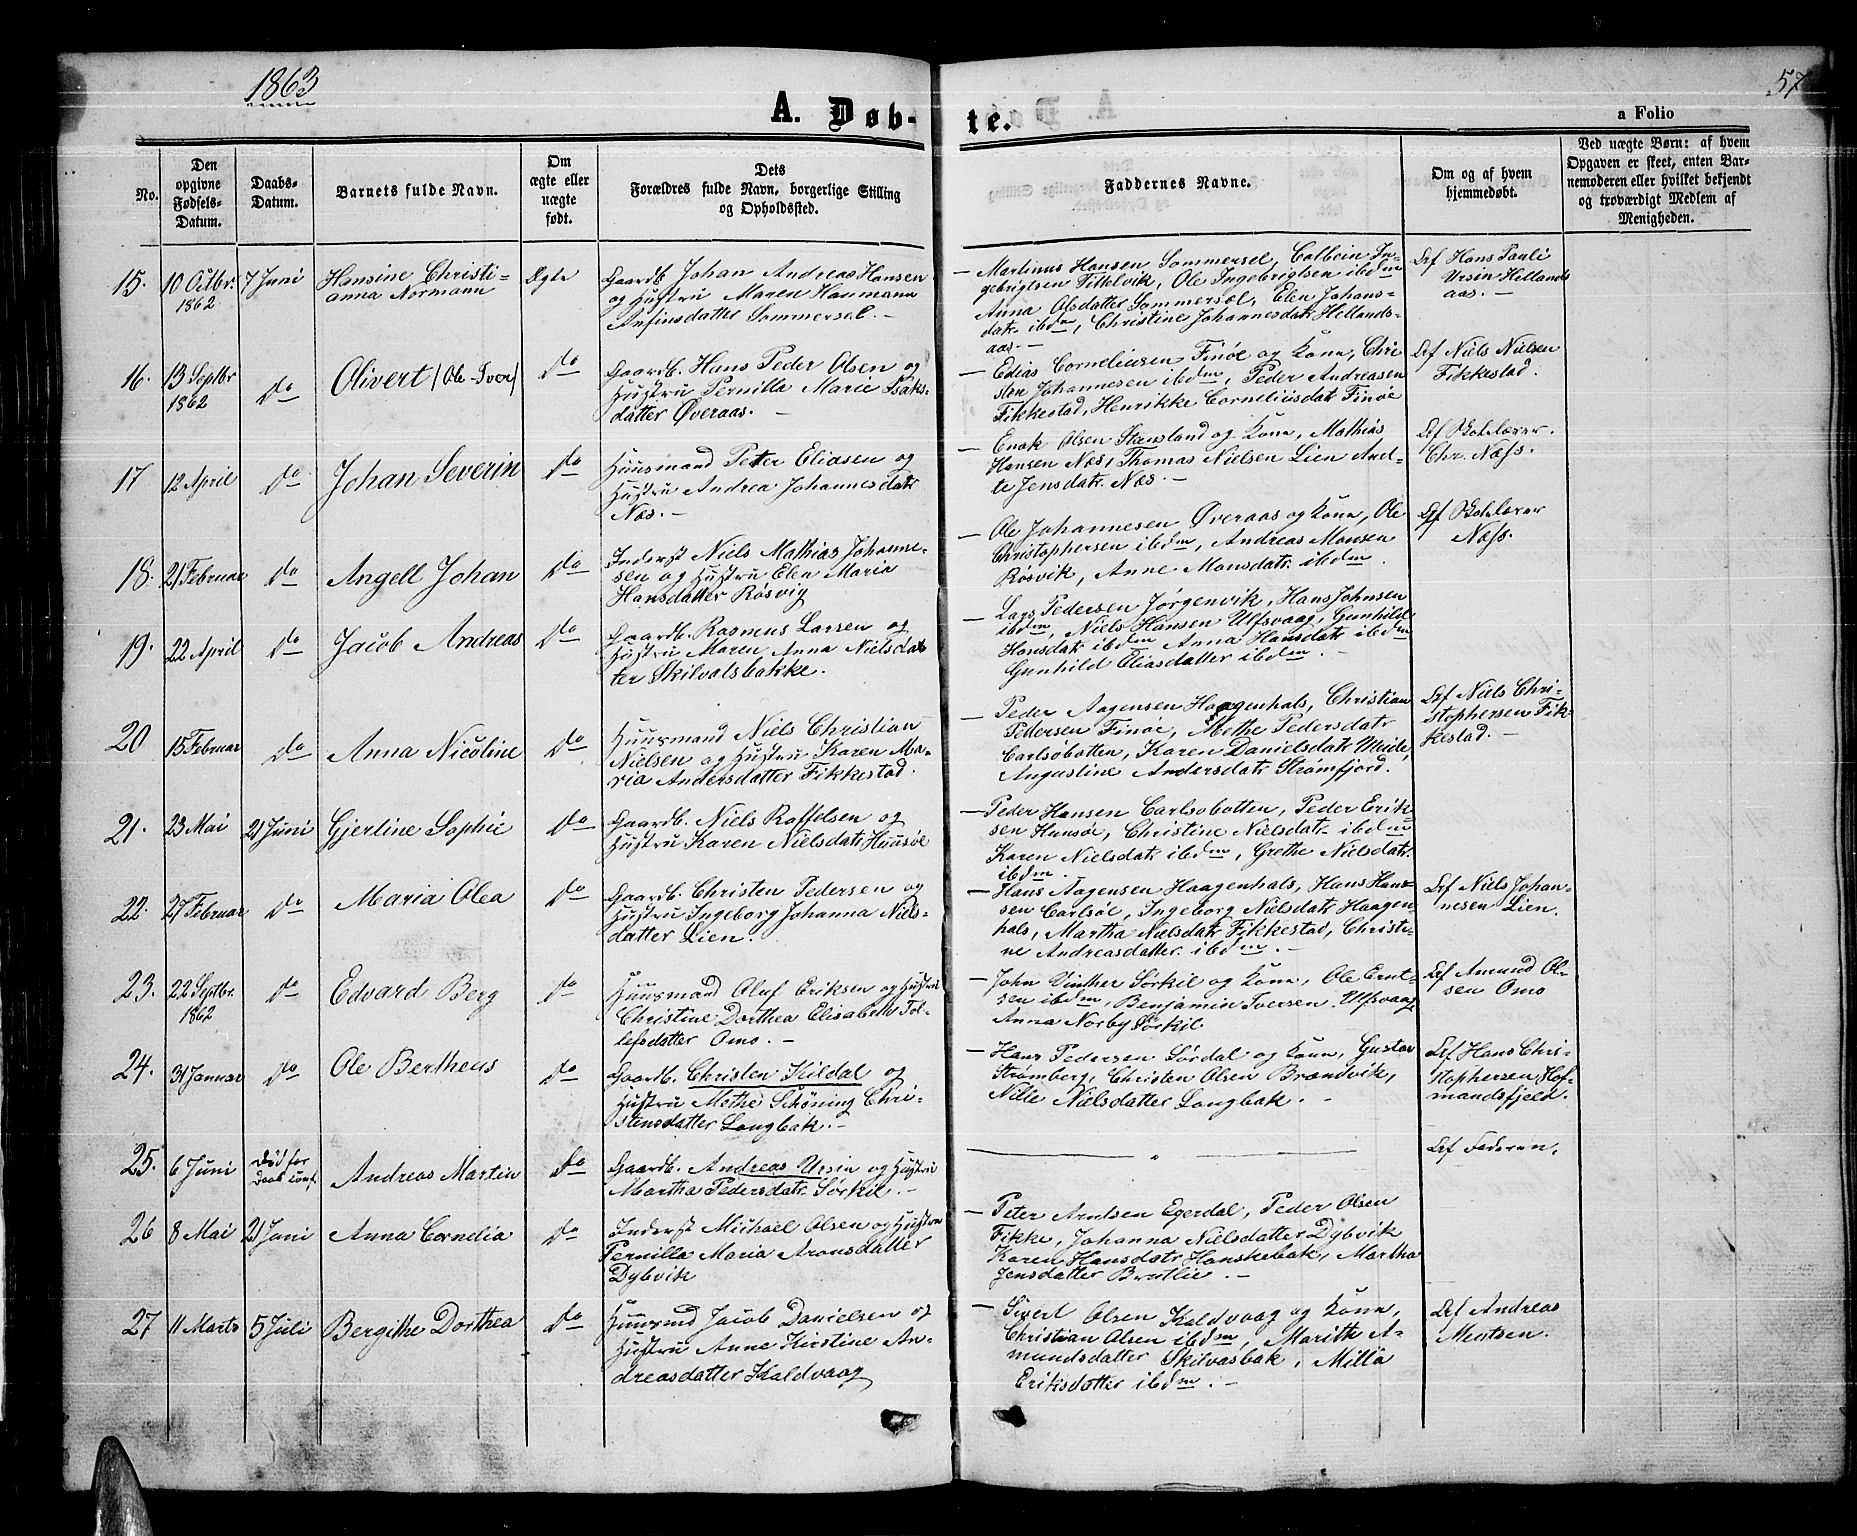 1863
57
A. Døb-
te.
a Folio
No.
Den
opgivne
Fødsels-
Datum.
Daabs-
Datum.
Barnets fulde Navn.
Om
ægte eller
uægte
født.
Dets
Forældres fulde Navn, borgerlige Stilling
og Opholdssted.
Faddernes Navne.
Om og af hvem
hjemmedøbt.
Ved uægte Børn: af hvem
Opgaven er skeet, enten Bar-
nemoderen eller hvilket bekjendt
og troværdigt Medlem af
Menigheden.
15.
10 Octbr.
1862
7 Juni
Hansine Christi-
anna Normann
Ægte
Gaardb. Johan Andreas Hansen
og Hustru Maren Haumann
Anfinsdatter Sommersel. -
- Martinus Hansen Sommersel, Colbein In-
gebrigtsen Fikkelvik, Ole Ingebrigtsen ibdm
Anna Olsdatter Sommersel, Elen Johans-
datr. ibdm, Christine Johannesdatr Hellands-
aas. -
Af Hans Pauli
Ursin Hellands
aas. -
16.
13 Septbr
1862
do
Olivert (Ole-Iver)
do
Gaardb. Hans Peder Olsen og
Hustru Pernille Marie Isaks-
datter Øveraas. -
- Edias Corneliussen Finøe og Kone, Chri-
sten Johannesen ibdm, Peder Andreasen
Fikkestad, Henrikke Corneliusdatr Finøe
Af Niels Nielsen
Fikkestad.
17
12 April
do
Johan Severin
do
Huusmand Peter Eliasen og
Hustru Andrea Johannesdatr
Næs. -
- Enok Olsen Stansland og Kone, Mathias
Hansen Næs, Thomas Nielsen Lien And-
te Jensdatr. Næs. -
Af Skolelærer
Chr. Næss.
18.
21 Februar
do
Angell Johan
do
Inderst Niels Mathias Johanne-
sen og Hustru Elen Maria
Hansdatter Røsvig
- Ole Johannesen Øveraas og Kone, Ole
Christophersen ibdm, Andreas Monsen
Røsvik, Anne Monsdatr. ibdm.
Af Skolelærer
Næss.
19.
22 April
do
Jacob Andreas
do
Gaardb. Rasmus Larsen og
Hustru Maren Anna Nielsdat-
ter Skilvalsbakke.
- Lars Pedersen Jørgenvik, Hans Johnsen
ibdm, Niels Hansen Ulfsvaag, Gunhild
Hansdatr ibdm Anna Hansdatr ibdm
Gunhild Eliasdatter ibdm. -
20
15 Februar
do
Anna Nicoline
do
Huusmand Niels Christian
Nielsen og Hustru Karen Ma-
ria Andersdatter Fikkestad.
- Peder Aagensen Haagenhals, Christian
Pedersen Finøe, Methe Pedersdatr
Carlsøbotten, Karen Danielsdatr Uteide,
Augustine Andersdatr Strømfjord.
Af Niels Chri-
stophersen Fik-
kestad. -
21.
23 Mai
21 Juni
Gjertine Sophie
do
Gaardb. Niels Roffelsen og
Hustru Karen Nielsdatr. Huusøe
- Peder Hansen Carlsobotten, Peder Erik-
sen Hunsøe, Christine Nielsdatr ibdm
Karen Nielsdatr ibdm, Grethe Nielsdatr.
ibdm.
22.
27 Februar
do
Maria Olea
do
Gaardb. Christen Pedersen og
Hustru Ingeborg Johanna Niels-
datter Lien.
- Hans Aagensen Haagenhals, Hans Han-
sen Carlsøe, Ingeborg Nielsdatr Haagen
hals, Martha Nielsdatr Fikkestad, Christi-
ne Andreasdatter ibdm. -
Af Niels Johan-
nesen Lien.
23.
22 Septbr.
1862
do
Edvard Berg
do
Huusmand Oluf Eriksen og Hustru
Christine Dorthea Elisabeth Tol-
lefsdatter Omo. -
- John Vinther Sørkil og Kone, Ole Ernt-
sen ibdm, Benjamin Iversen Ulfsvaag
Anna Norby Sørkil.
Af Amund Ol-
sen Omo
24.
31 Januar
do
Ole Bertheus
do
Gaardb. Christen Kildal og
Hustru Methe Schöning Chri-
stensdatter Langbak. -
- Hans Pedersen Sørdal og Kone, Gustav
Strømberg, Christen Olsen Brændvik,
Nille Nielsdatter Langbak. -
Af Hans Chri-
stophersen Hof-
mandsfjeld.
25.
6 Juni
Død før
Daab. conf.
Andreas Martin
do
Gaardb. Andreas Ursin og Hustru
Martha Pedersdatr. Sørkil. -
"
Af Faderen.
26
8 Mai
21 Juni
Anna Cornelia
do
Inderst Michael Olsen og Hustru
Pernilla Maria Aronsdatter
Dybvik
- Peter Arntsen Egerdal, Peder Olsen
Fikke, Johanna Nielsdatter Dybvik
Karen Hansdatr Hanskebak, Martha
Jensdatter Bratlie. -
27
11 Marts
5 Juli
Bergithe Dorthea
do
Huusmd Jacob Danielsen og
Hustru Anne Kirstine An-
dreasdatter Kaldvaag
- Sivert Olsen Kaldvaag og Kone,
Christian Olsen ibdm, Marith A-
mundsdatter Skilvasbak, Milla
Eriksdatter ibdm. -
Af Andreas
Mentsen.